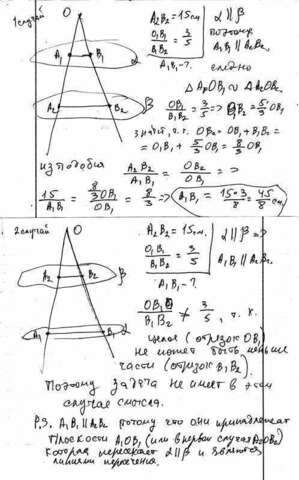 1 случай
O
A₂B₂ = 15 см
α ∥ β
OB₁/B₁B₂ = 3/5
поэтому
A₁B₁ ∥ A₂B₂
A₁B₁ - ?
A₁ B₁ α
ΔA₁OB₁ ∾ ΔA₂OB₂
A₂ B₂ β
OB₁/B₁B₂ = 3/5 => B₁B₂ = 5/3 OB₁
значит, т.к. OB₂ = OB₁ + B₁B₂ =
= OB₁ + 5/3 OB₁ = 8/3 OB₁
из подобия A₂B₂/A₁B₁ = OB₂/OB₁ =>
15/A₁B₁ = 8/3 OB₁/OB₁ = 8/3 => A₁B₁ = 15·3/8 = 45/8 см
2 случай
O
A₂B₂ = 15 см.
α ∥ β =>
OB₁/B₁B₂ = 3/5
A₁B₁ ∥ A₂B₂.
A₁B₁ - ?
A₂ B₂ β
OB₁/B₁B₂ ≠ 3/5, т.к.
целое (отрезок OB₁)
A₁ B₁ α
не может быть меньше
части (отрезок B₁B₂).
Поэтому задача не имеет в этом
случае смысла.
P.S. A₁B₁ ∥ A₂B₂ потому что они принадлежат
плоскости A₁OB₁ (или в первом случае A₂OB₂)
которая пересекает α ∥ β и являются
линиями пересечения.